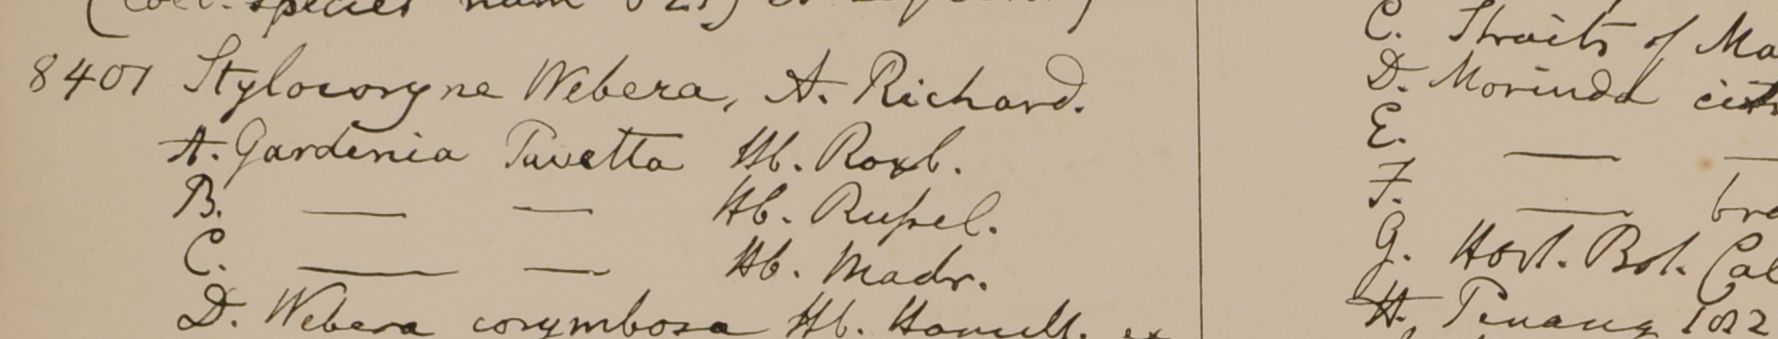 8401 Stylocoryne Webera, A. Richard.
A. Gardenia Pavetta Hb. Roxb.
B. — — Hb. Russel.
C. — — Hb. Madr.
D. Webera corymbosa Hb. Hamilt.
C. Straits of Ma
D. Morinda cit
E. — —
F. — bra
G. Hort. Bot. Cal
H. Penang 1822